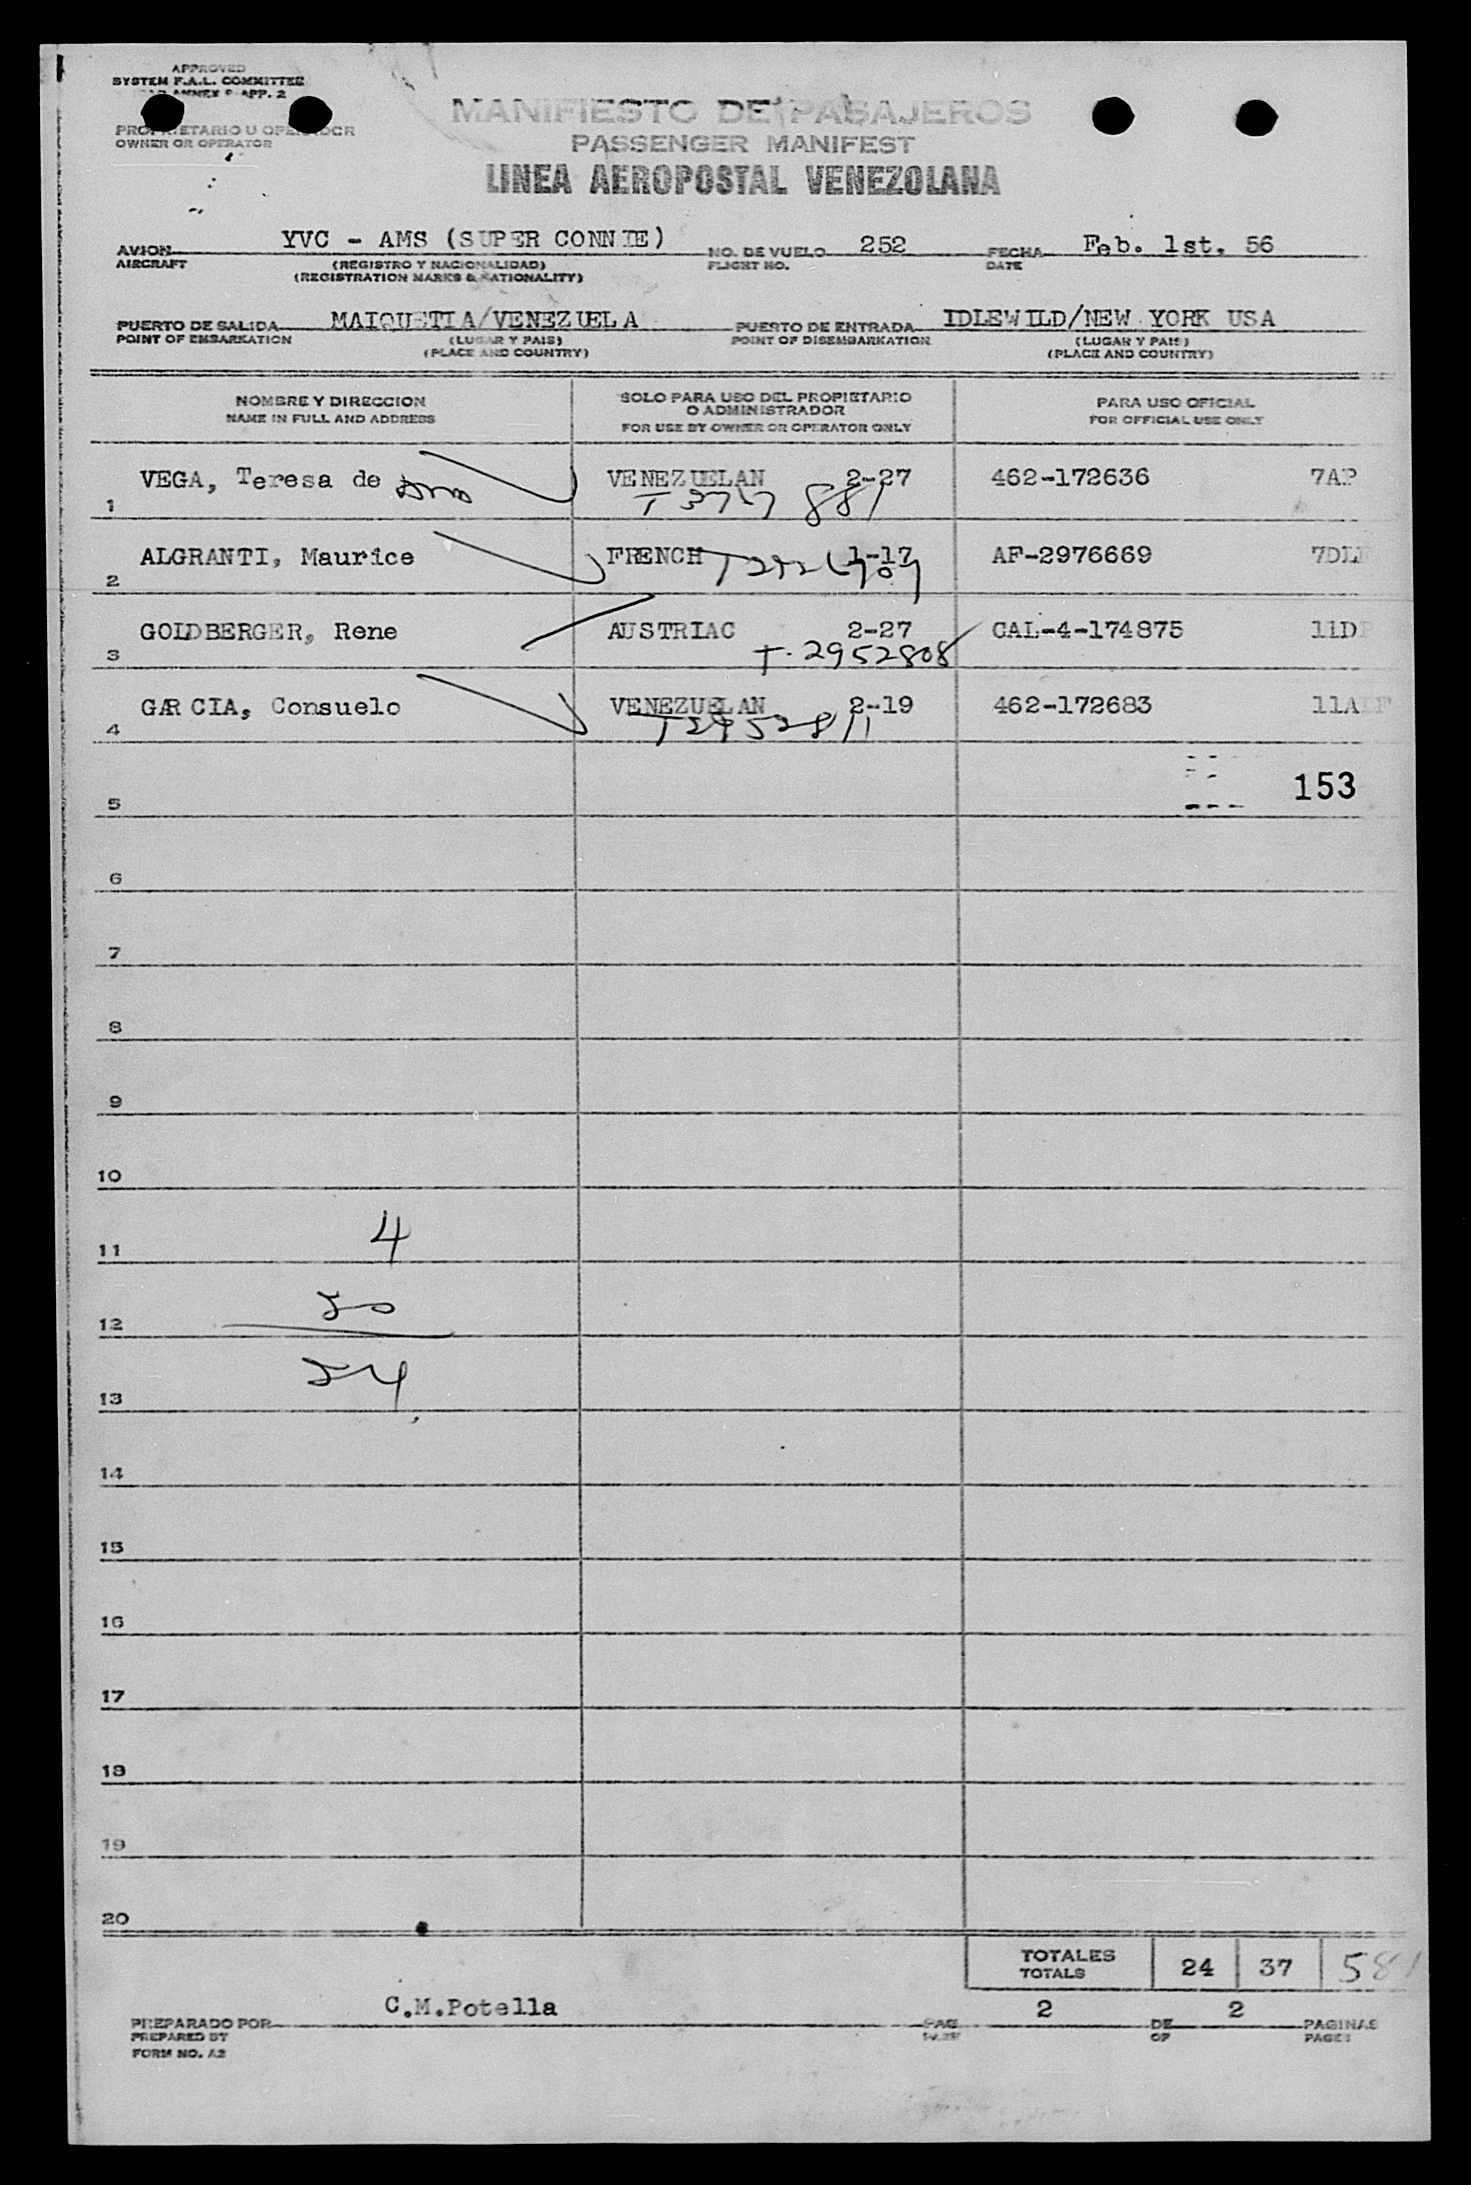 APPROVED
SYSTEM F.A.L. COMMITTEE
ANNEX 9 APP. 2
PROPIETARIO U OPERADOR
OWNER OR OPERATOR
MANIFIESTO DE PASAJEROS
PASSENGER MANIFEST
LINEA AEROPOSTAL VENEZOLANA
AVION YVC - AMS (SUPER CONNIE) NO. DE VUELO 252 FECHA Feb. 1st. 56
AIRCRAFT (REGISTRO Y NACIONALIDAD) FLIGHT NO. DATE
(REGISTRATION MARKS & NATIONALITY)
PUERTO DE SALIDA MAIQUETIA/VENEZUELA PUERTO DE ENTRADA IDLEWILD/NEW YORK USA
POINT OF EMBARKATION (LUGAR Y PAIS) POINT OF DISEMBARKATION (LUGAR Y PAIS)
(PLACE AND COUNTRY) (PLACE AND COUNTRY)
NOMBRE Y DIRECCION SOLO PARA USO DEL PROPIETARIO PARA USO OFICIAL
O ADMINISTRADOR
NAME IN FULL AND ADDRESS FOR USE BY OWNER OR OPERATOR ONLY FOR OFFICIAL USE ONLY
VEGA, Teresa de VENEZUELAN 2-27 462-172636 7AP
1
ALGRANTI, Maurice FRENCH 1-17 AF-2976669
2
GOLDBERGER, Rene AUSTRIAC 2-27 CAL-4-174875
T-2952808
3
GARCIA, Consuelo VENEZUELAN 2-19 462-172683
T2952811
4
153
5
6
7
8
9
10
4
11
20
12
24
13
14
15
16
17
18
19
20
TOTALES 24 37 581
TOTALS
PREPARADO POR C.M.Potella PAG. 2 DE 2 PAGINAS
PREPARED BY OF PAGES
FORM NO. A2